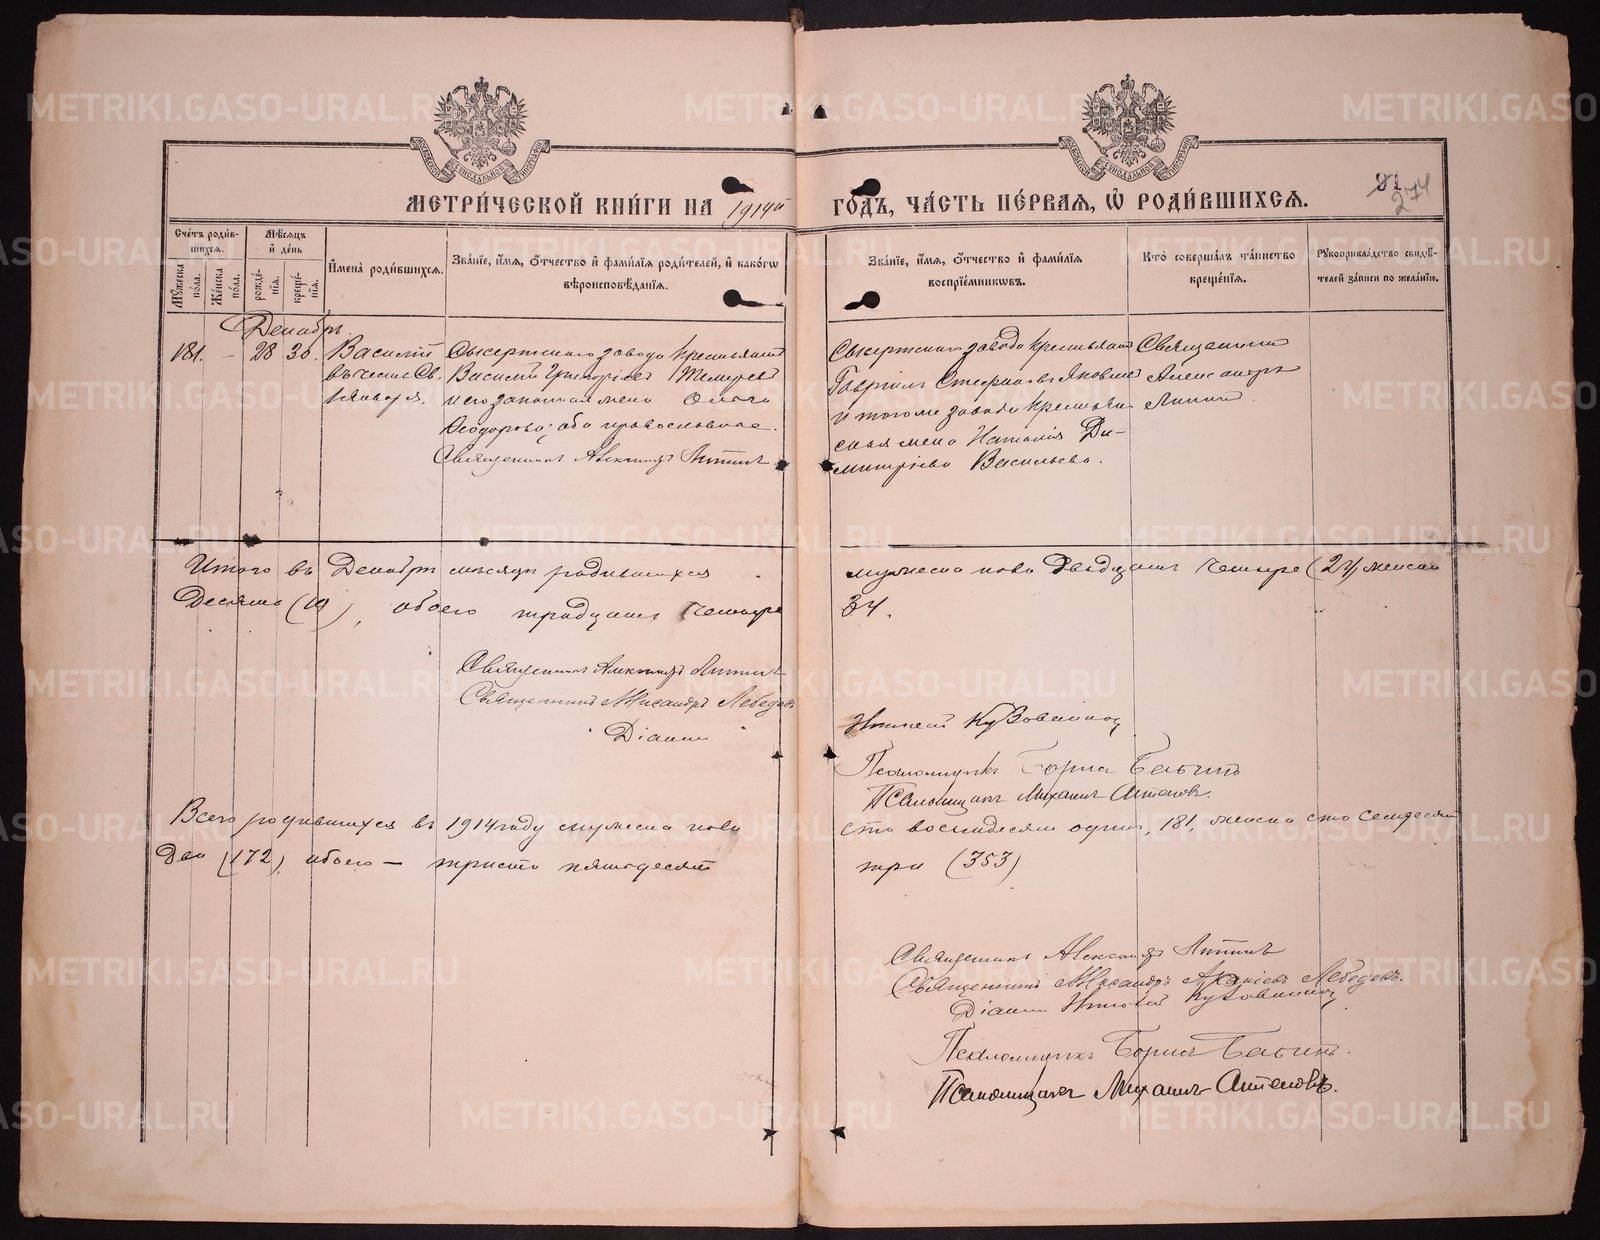 МЕТРИ́ЧЕСКОЙ КНИ́ГИ НА 1914й ГО́ДЪ, ЧА́СТЬ ПЕ́РВАЯ, Ѡ҆ РОДИ́ВШИХСЯ.
274
Сче́тъ роди́вшихся.
Мꙋ́жеска по́ла.
Же́нска по́ла.
Мѣ́сяцъ и҆ де́нь
рожде́нїя.
креще́нїя.
И҆мена̀ роди́вшихся.
Зва́нїе, и҆́мя, ѻ҆́тчество и҆ фами́лїя роди́телей, и҆ како́гѡ вѣроисповѣ́данїя.
Зва́нїе, и҆́мя, ѻ҆́тчество и҆ фами́лїя воспрїе́мникѡвъ.
Кто̀ соверша́лъ та́инство креще́нїя.
Рꙋкоприкла́дство свидѣ́телей за́писи по жела́нїю.
Декабрь.
181. – 28 30. Василій
въ честь Св.
1 Января.
Сысертскаго завода крестьянинъ
Василій Григоріевъ Темеревъ
и его законная жена Ольга
Ѳеодорова; оба православные.
Священникъ Александръ
Сысертскаго завода крестьянинъ
Гавріилъ Стефановъ Яковлев
и того же завода крестьян
ская жена Наталія Ди-
митріева Васильева.
Священникъ
Александръ
Итого въ Декабрѣ мѣсяцѣ родившихся мужеска пола двадцать четыре (24) женска
десять (10), обоего тридцать четыре 34.
Священникъ Александръ
Священникъ Александръ Лебедевъ
Діаконъ Николай Кузовников
Псаломщикъ Борис Бабинъ
Псаломщикъ Михаилъ
Всего родившихся въ 1914 году мужеска пола сто восемдесятъ одинъ, 181, женска сто семдесят
два (172), обоего – триста пятьдесятъ три (353)
Священникъ Александръ
Священникъ Александръ Лебедевъ.
Діаконъ Николай Кузовников
Псаломщикъ Борисъ Бабинъ.
Псаломщикъ Михаилъ
METRIKI.GASO-URAL.RU